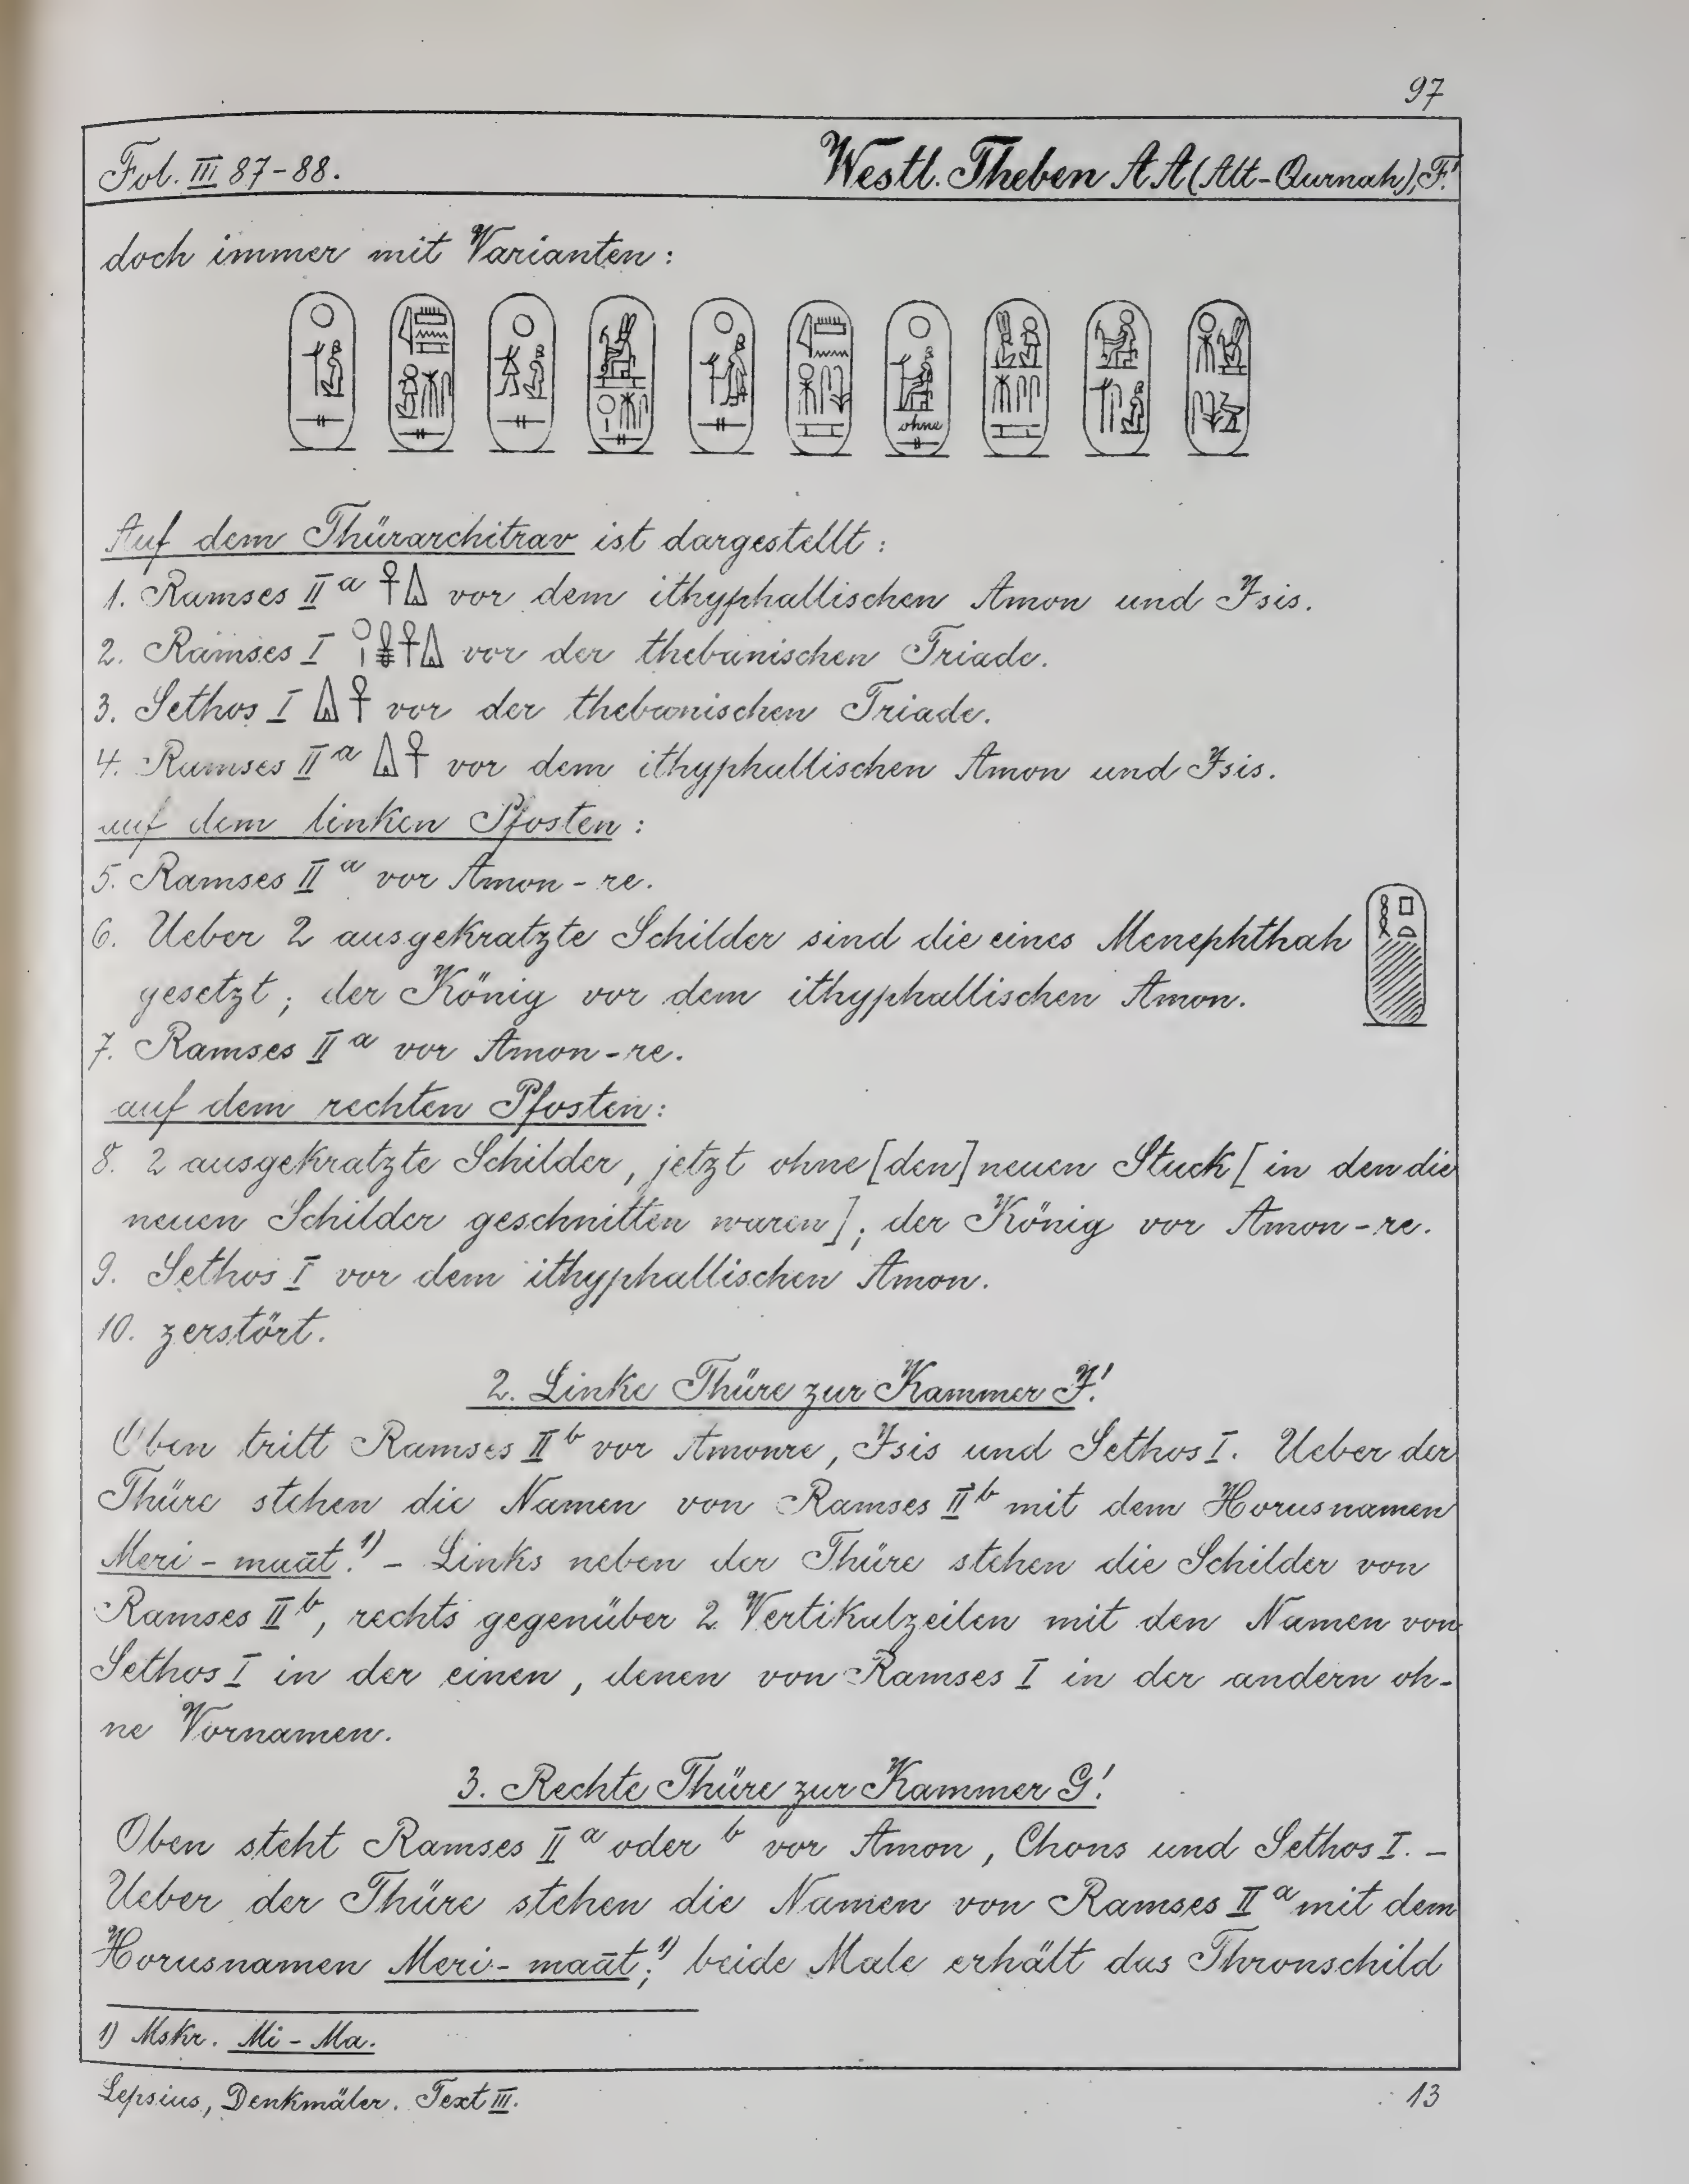 97
Fol. III 87-88. Westl. Theben AA (Alt-Qurnah), F!
doch immer mit Varianten:
ohne
Auf dem Thürarchitrav ist dargestellt:
1. Ramses II a 𓋹𓏙 vor dem ithyphallischen Amon und Isis.
2. Ramses I vor der thebanischen Triade.
3. Sethos I 𓏙𓋹 vor der thebanischen Triade.
4. Ramses II a 𓏙𓋹 vor dem ithyphallischen Amon und Isis.
auf dem linken Pfosten:
5. Ramses II a vor Amon-re.
6. Ueber 2 ausgekratzte Schilder sind die eines Menephthah
gesetzt; der König vor dem ithyphallischen Amon.
7. Ramses II a vor Amon-re.
auf dem rechten Pfosten:
8. 2 ausgekratzte Schilder, jetzt ohne [den] neuen Stuck [in den die
neuen Schilder geschnitten waren]; der König vor Amon-re.
9. Sethos I vor dem ithyphallischen Amon.
10. zerstört.
2. Linke Thüre zur Kammer F!
Oben tritt Ramses II b vor Amonre, Isis und Sethos I. Ueber der
Thüre stehen die Namen von Ramses II b mit dem Horusnamen
Meri-maāt. 1) - Links neben der Thüre stehen die Schilder von
Ramses II b, rechts gegenüber 2 Vertikalzeilen mit den Namen von
Sethos I in der einen, denen von Ramses I in der andern oh-
ne Vornamen.
3. Rechte Thüre zur Kammer G!
Oben steht Ramses II a oder b vor Amon, Chons und Sethos I. -
Ueber der Thüre stehen die Namen von Ramses II a mit dem
Horusnamen Meri-maāt; 1) beide Male erhält das Thronschild
1) Mskr. Mi-Ma.
Lepsius, Denkmäler. Text III. 13